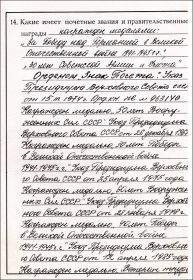 14. Какие имеет почетные звания и правительственные
награды награжден медалями:
"За Победу над Германией в Великой
Отечественной войне 1941-1945 гг."
"30 лет Советской Армии и Флота"
Орденом "Знак Почета" Указ
Президиума Верховного Совета СССР
от 15
Награжден медалью 50 лет Вооруженных
Сил СССР. Указ Президиума
Верховного Совета СССР от 26 декабря 1967
Награжден медалью 30 лет Победы
в Великой Отечественной войне
1941-1945 г. Указ Президиума Верховного
Совета от 25 апреля 1975 года.
Награжден медалью 60 лет Вооруженных
Сил СССР. Указ Президиума Верховного
Совета СССР от 28 января 1978 г.
Награжден медалью 40 лет Победы
в Великой Отечественной войне
1941-1945 г. Указ Президиума Верховного
Совета СССР от 12 апреля 1985 года
Награжден медалью Ветеран